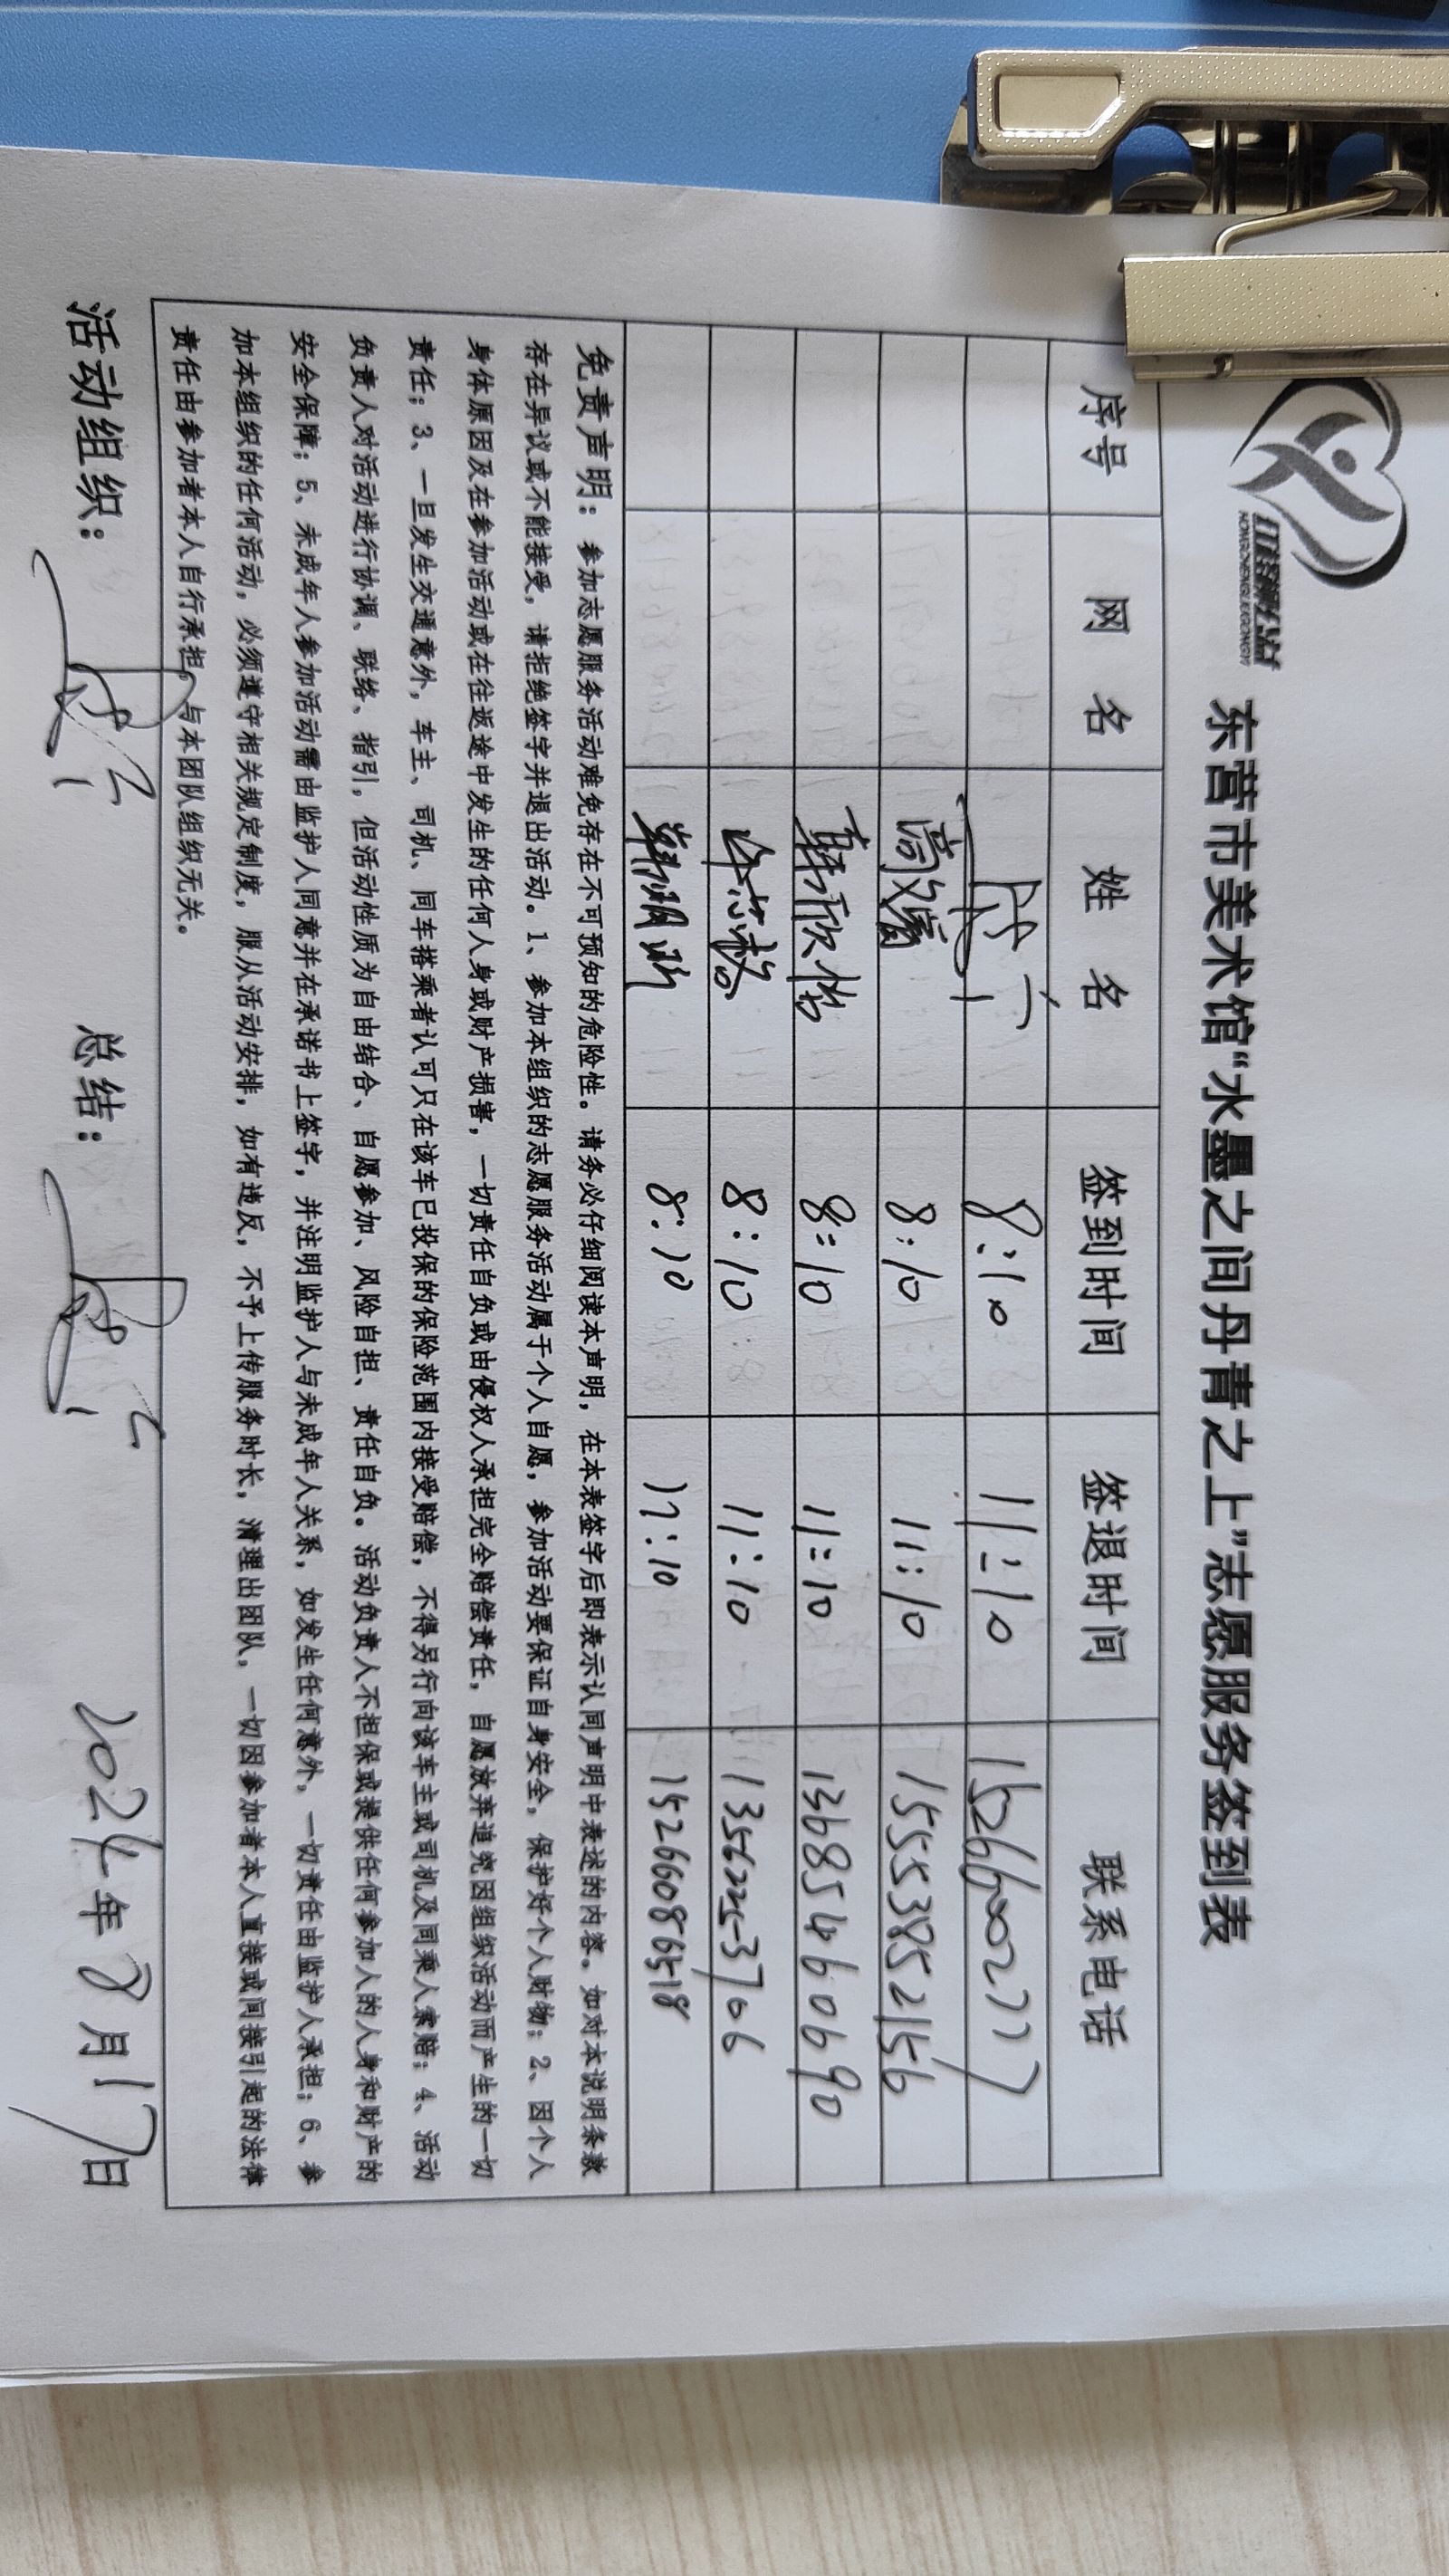 红橙派公益
东营市美术馆“水墨之间丹青之上”志愿服务签到表
序号 网 名 姓 名 签到时间 签退时间 联系电话
8:10 11:10
高文馨 8:10 11:10 15553852156
韩欣怡 8:10 11:10 13685460690
8:10 11:10 13562253706
8:10 11:10 15266086518
免责声明：参加志愿服务活动难免存在不可预知的危险性。请务必仔细阅读本声明，在本表签字后即表示认同声明中表述的内容。如对本说明条款
存在异议或不能接受，请拒绝签字并退出活动。1、参加本组织的志愿服务活动属于个人自愿，参加活动要保证自身安全，保护好个人财物；2、因个人
身体原因及在参加活动或在往返途中发生的任何人身或财产损害，一切责任自负或由侵权人承担完全赔偿责任，自愿放弃追究因组织活动而产生的一切
责任；3、一旦发生交通意外，车主、司机、同车搭乘者认可只在该车已投保的保险范围内接受赔偿，不得另行向该车主或司机及同乘人索赔；4、活动
负责人对活动进行协调、联络、指引，但活动性质为自由结合、自愿参加、风险自担、责任自负。活动负责人不担保或提供任何参加人的人身和财产的
安全保障；5、未成年人参加活动需由监护人同意并在承诺书上签字，并注明监护人与未成年人关系，如发生任何意外，一切责任由监护人承担；6、参
加本组织的任何活动，必须遵守相关规定制度，服从活动安排，如有违反，不予上传服务时长，清理出团队，一切因参加者本人直接或间接引起的法律
责任由参加者本人自行承担，与本团队组织无关。
活动组织： 总结： 2024年8月17日